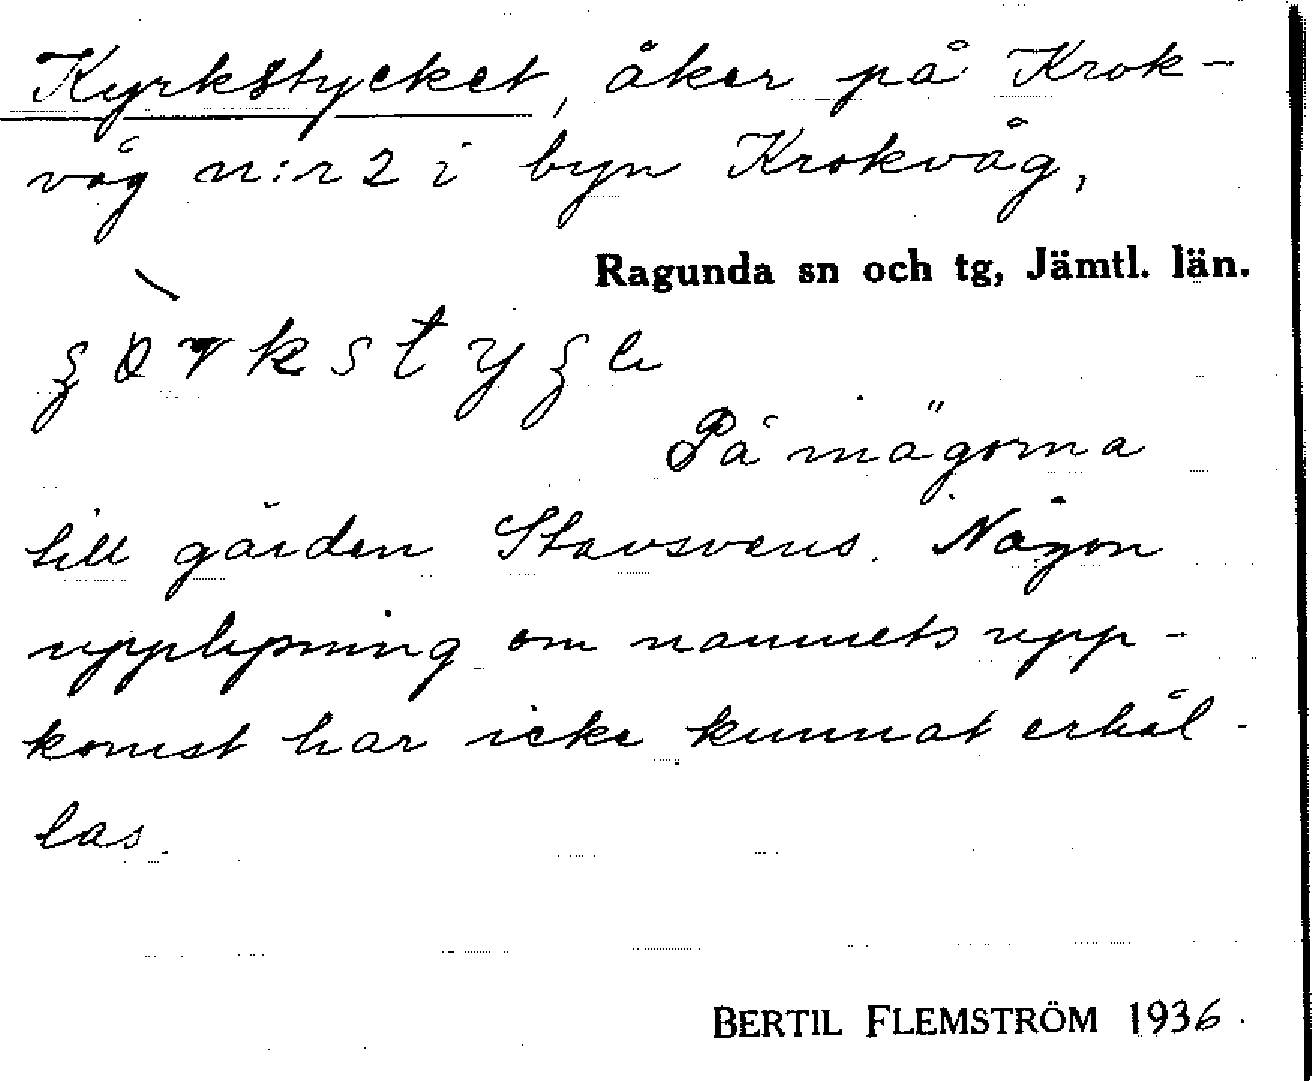 Kyrkstycket, åker på Krok-
våg n:r 2 i byn Krokvåg,
Ragunda sn och tg, Jämtl. län.
På inägorna
till gården Stavsvens. Någon
upplysning om namnets upp-
komst har icke kunnat erhål-
las.
BERTIL FLEMSTRÖM 1936.